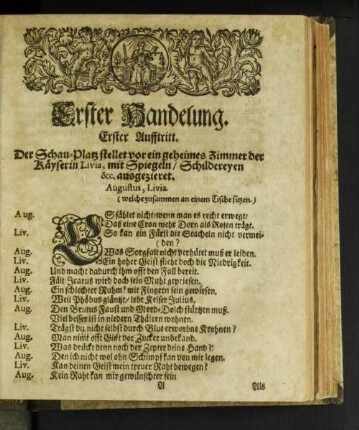 Erster Handelung.
Erster Aufftritt.
Der Schau-Platz stellet vor ein geheimes Zimmer der
Käyserin Livia, mit Spiegeln / Schildereyen
&c. ausgezieret.
Augustus, Livia.
(welche zusammen an einem Tische sitzen.)
Aug. ES fählet nicht: wenn man es recht erweget /
Daß eine Cron mehr Dorn als Rosen trägt.
Liv. So kan ein Fürst die Stacheln nicht vermei-
den?
Aug. Was Sorgfalt nicht verhütet muß er leiden.
Liv. Ein hoher Geist flieht doch die Niedrigkeit.
Aug. Und macht dadurch ihm offt den Fall bereit.
Liv. Fält Icarus wird doch sein Muht gepriesen.
Aug. Ein schlechter Ruhm! mit Fingern sein gewiesen.
Liv. Weil Phöbus gläntzt / lebt Keiser Julius.
Aug. Den Brutus Faust und Mord-Dolch stürtzen muß.
Viel besser ist in niedern Thälern wohnen.
Liv. Trägst du nicht selbst durch Blut erworbne Krohnen?
Aug. Man nimt offt Gift vor Zucker unbekand.
Liv. Was drückt denn noch der Zepter deine Hand?
Aug. Den ich nicht wol ohn Schimpf kan von mir legen.
Liv. Kan deinen Geist mein treuer Raht bewegen?
Aug. Kein Raht kan mir gewünschter sein
A Als